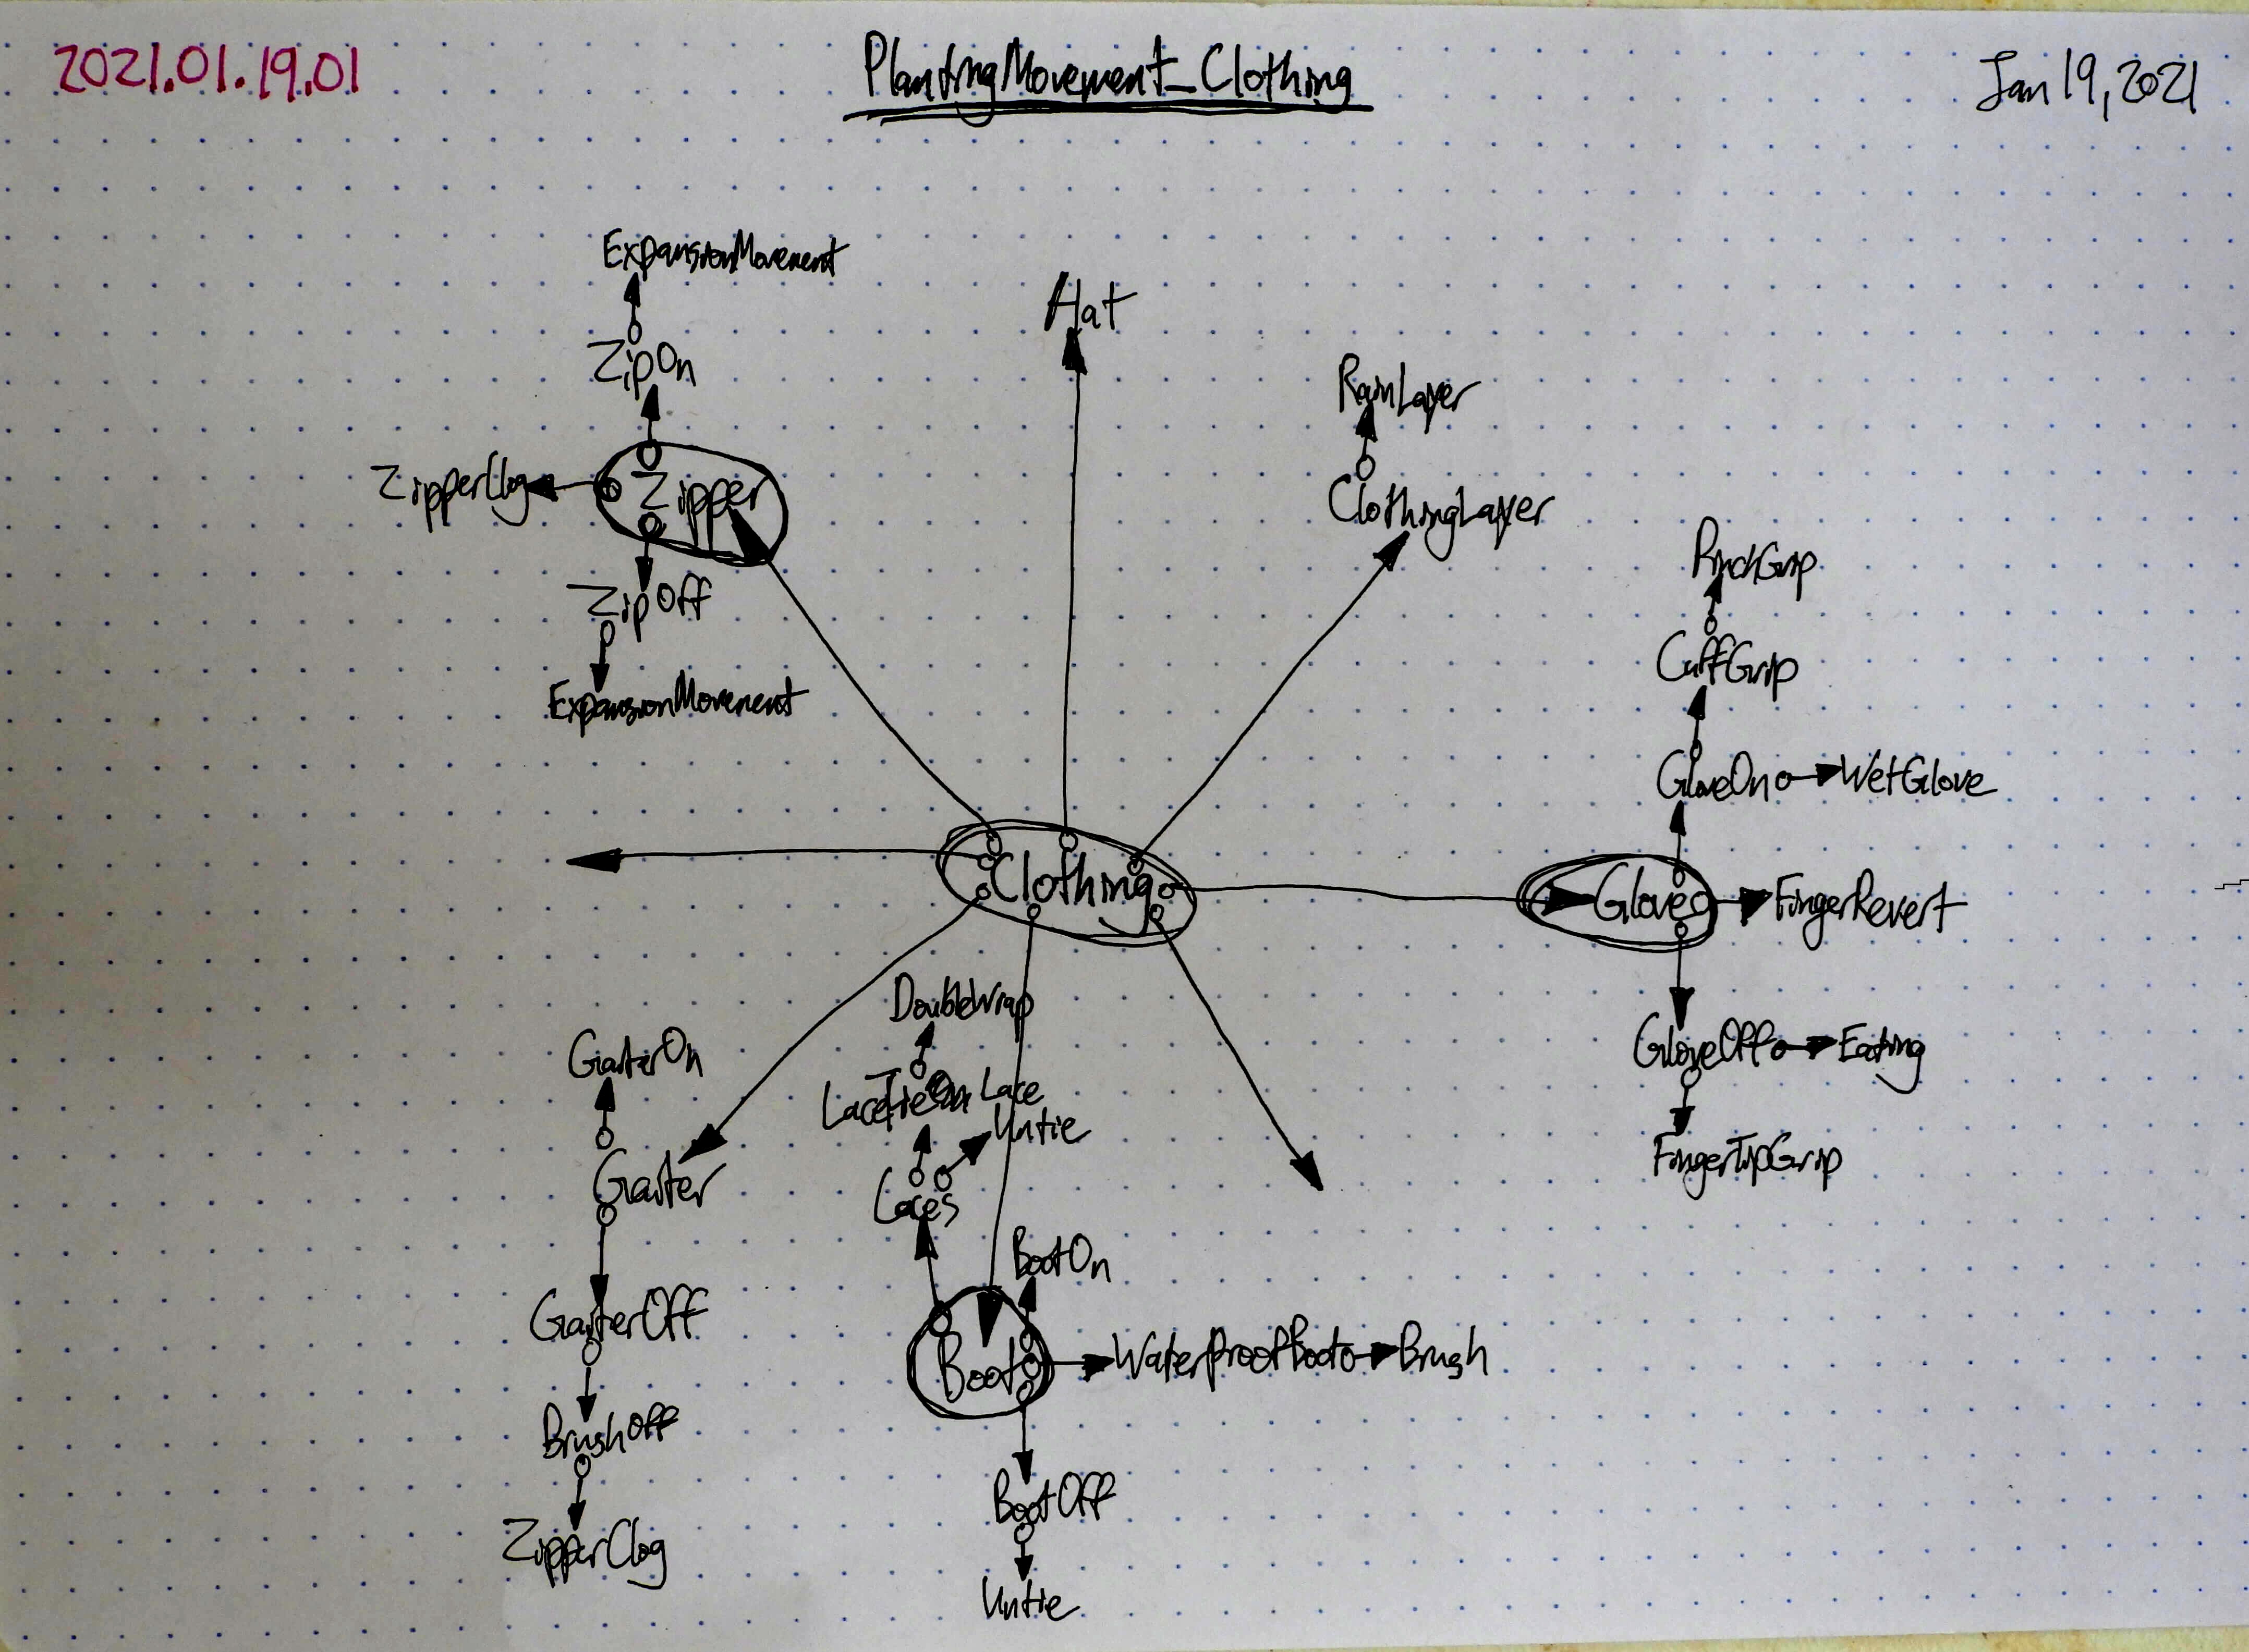 2021.01.19.01
PlantingMovement_Clothing
Jan 19, 2021
ExpansionMovement
Hat
ZipOn
RainLayer
ZipperClog
Zipper
ClothingLayer
PinchGrip
ZipOff
CuffGrip
ExpansionMovement
GloveOn
WetGlove
Clothing
Glove
FingerRevert
DoubleWrap
GaiterOn
GloveOff
Eating
LaceTieOn
Lace
Untie
FingerTipGrip
Gaiter
Laces
BootOn
GaiterOff
Boot
WaterProofBoot
Brush
BrushOff
BootOff
ZipperClog
Untie